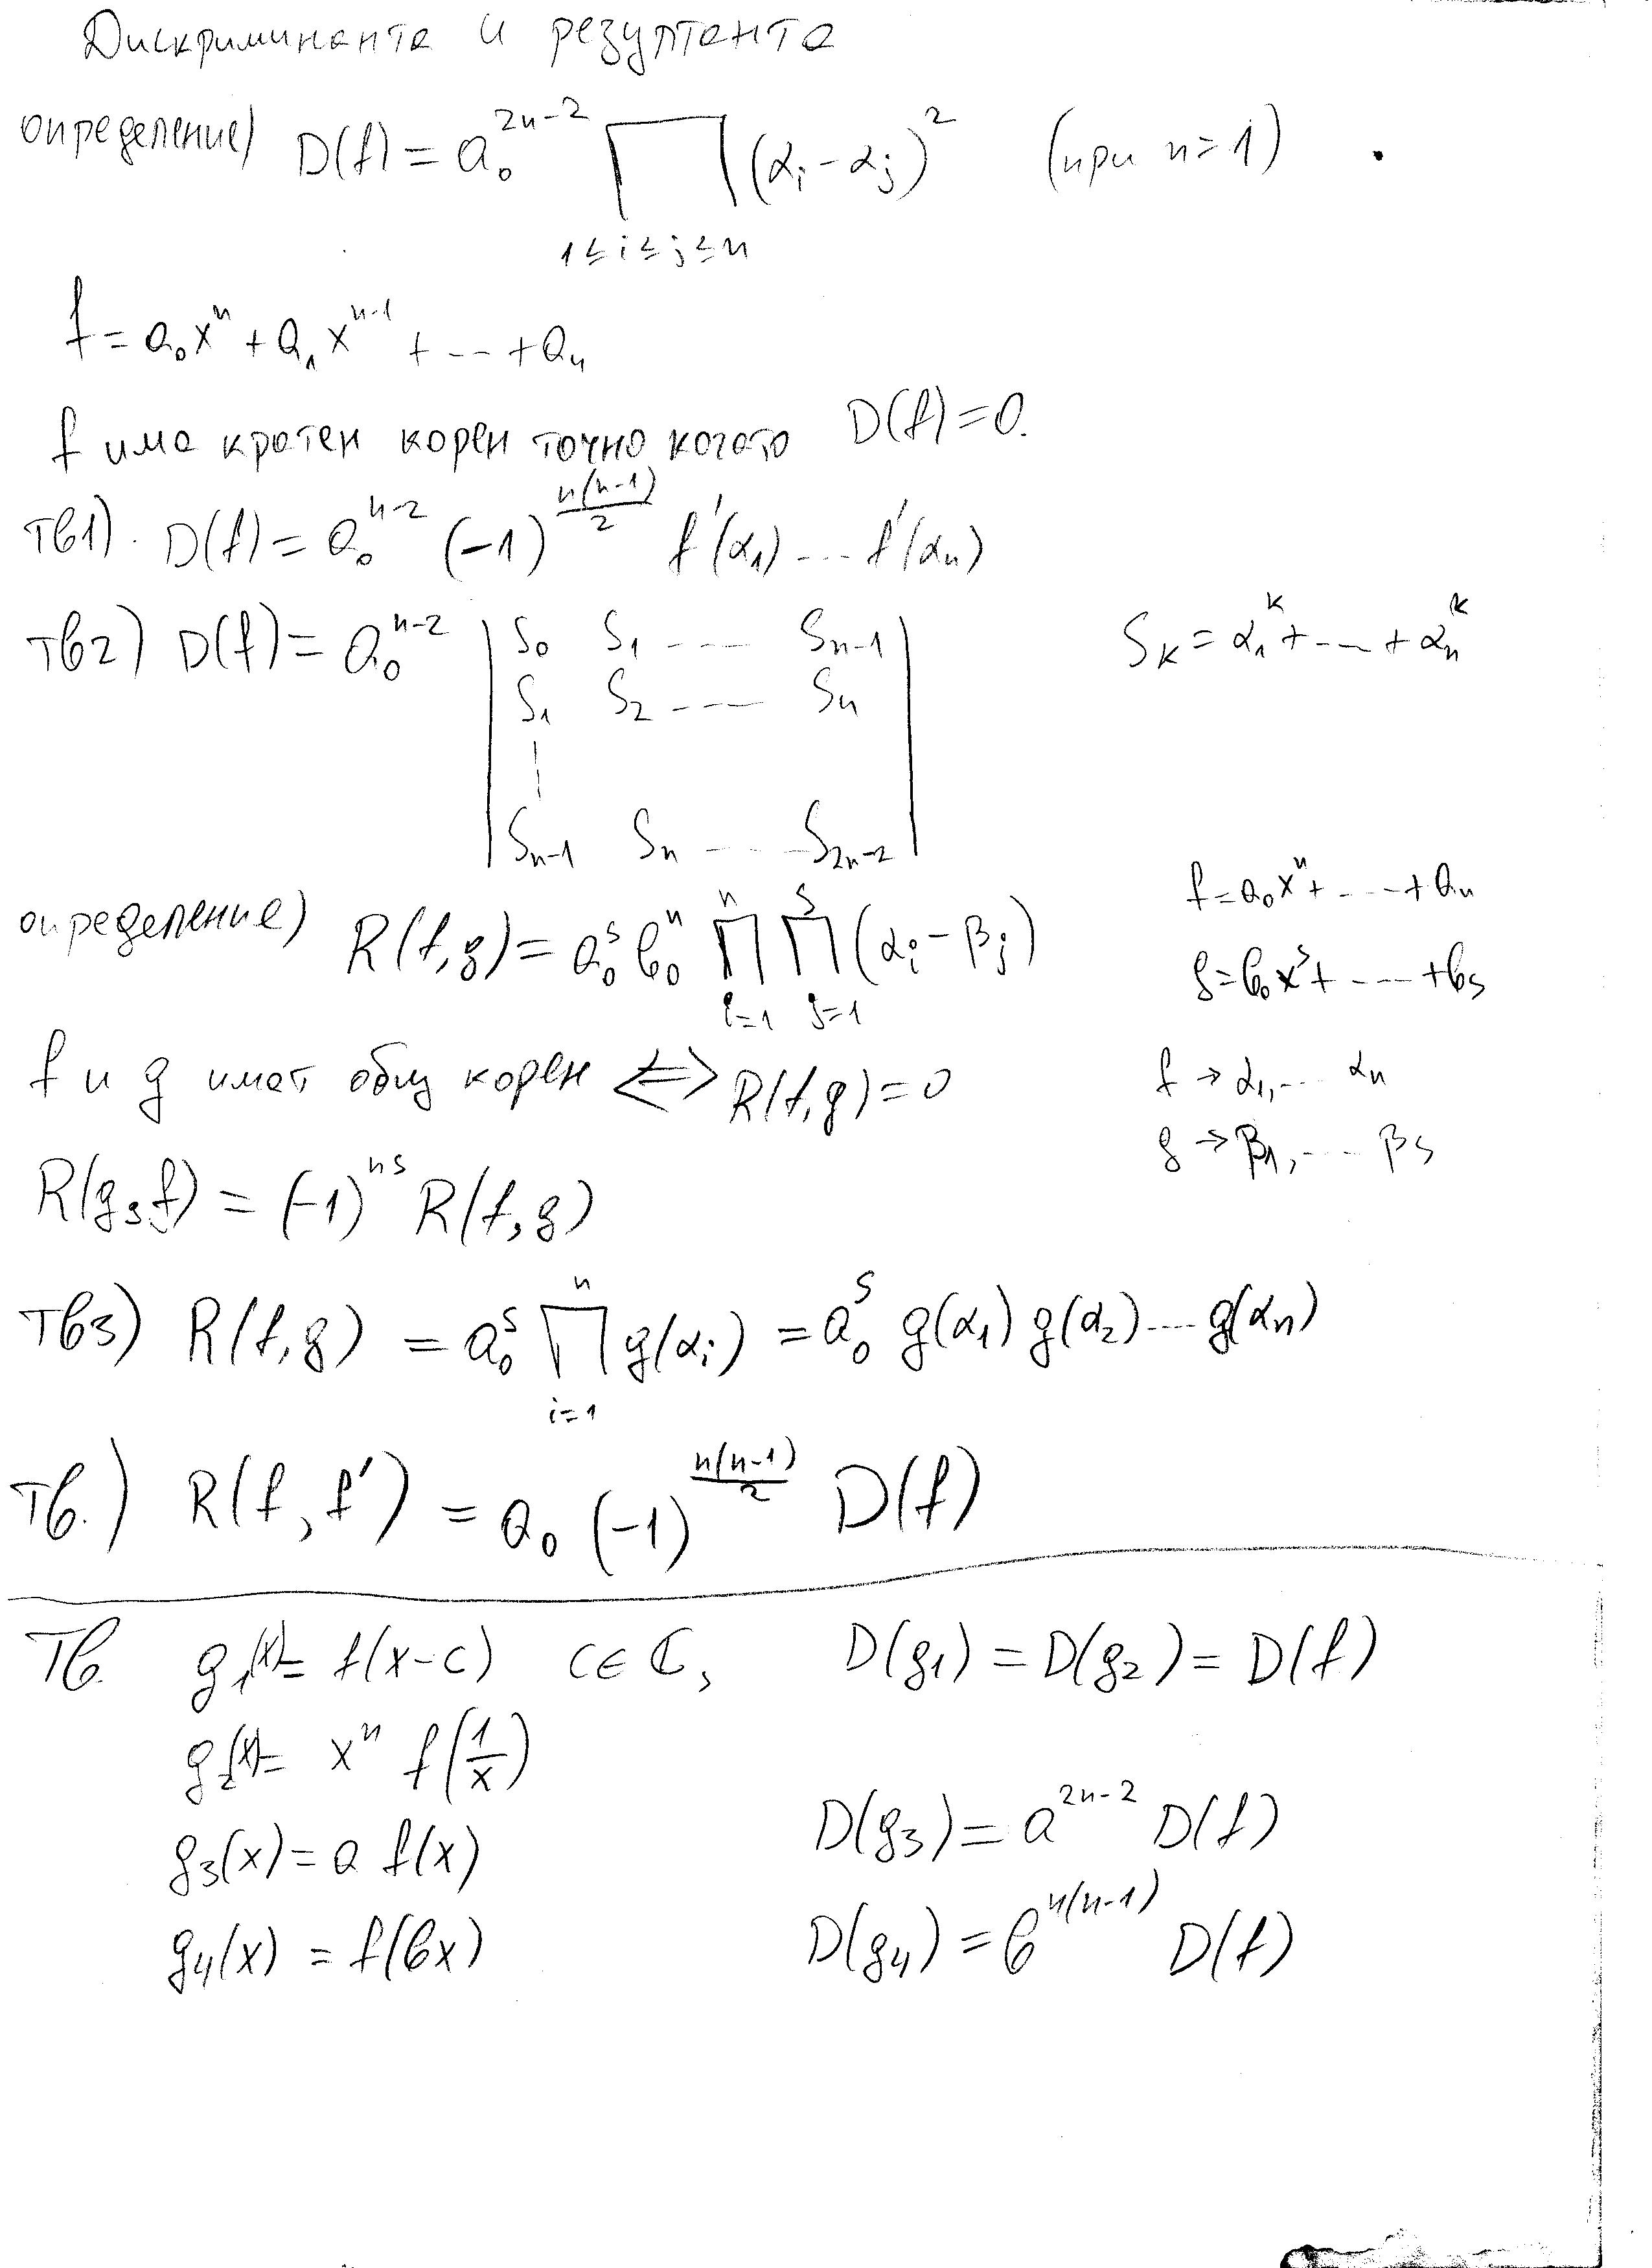 Дискриминанта и резултанта
определение) D(f) = a₀²ⁿ⁻² ∏ (αᵢ - αⱼ)² (при n>1)
1≤i≤j≤n
f = a₀xⁿ + a₁xⁿ⁻¹ + ... + aₙ
f има кратен корен точно когато D(f)=0.
Тв1). D(f) = a₀ⁿ⁻² (-1)^(n(n-1)/2) f'(α₁) ... f'(αₙ)
Тв2) D(f) = a₀ⁿ⁻² | S₀ S₁ ... Sₙ₋₁ | Sₖ = α₁ᵏ + ... + αₙᵏ
S₁ S₂ ... Sₙ
Sₙ₋₁ Sₙ ... S₂ₙ₋₂
f = a₀xⁿ + ... + aₙ
определение) R(f,g) = a₀ˢ b₀ⁿ ∏ ∏ (αᵢ - βⱼ)
n s
i=1 j=1
g = b₀xˢ + ... + bₛ
f и g имат общ корен <=> R(f,g)=0
f → α₁, ... αₙ
g → β₁, ... βₛ
R(g,f) = (-1)ⁿˢ R(f,g)
Тв3) R(f,g) = a₀ˢ ∏ g(αᵢ) = a₀ˢ g(α₁) g(α₂) ... g(αₙ)
n
i=1
Тв.) R(f, f') = a₀ (-1)^(n(n-1)/2) D(f)
Тв. g₁(x) = f(x-c) c∈ℂ, D(g₁) = D(g₂) = D(f)
g₂(x) = xⁿ f(1/x)
g₃(x) = a f(x) D(g₃) = a²ⁿ⁻² D(f)
g₄(x) = f(bx) D(g₄) = b^(n(n-1)) D(f)